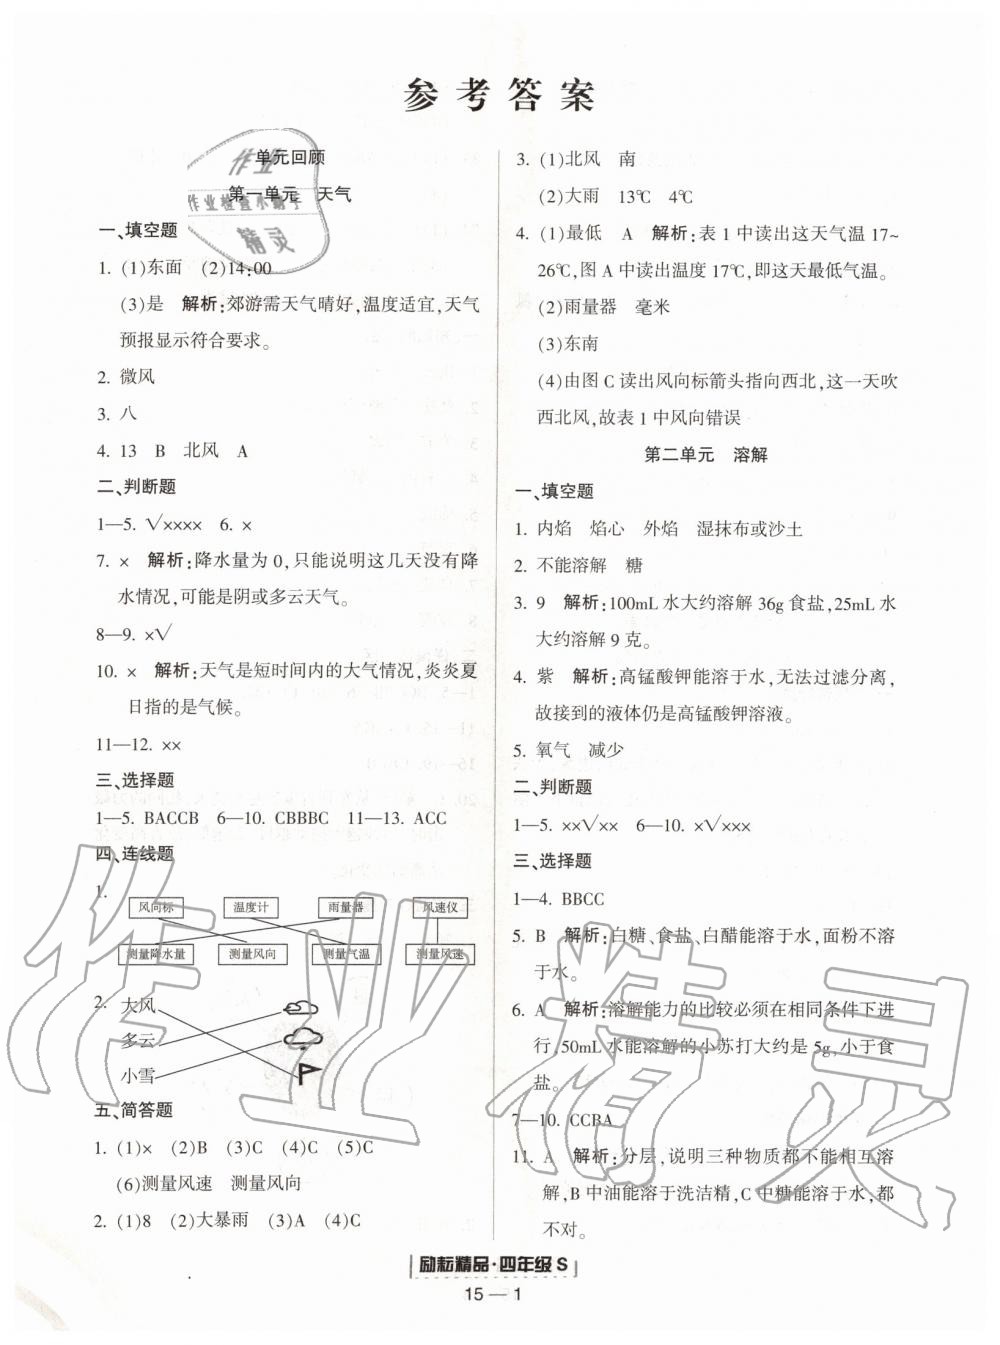 参考答案
单元回顾
第一单元 天气
一、填空题
1. (1)东面 (2)14:00
(3)是 解析:郊游需天气晴好,温度适宜,天气
预报显示符合要求。
2. 微风
3. 八
4. 13 B 北风 A
二、判断题
1—5. √×××× 6. ×
7. × 解析:降水量为0,只能说明这几天没有降
水情况,可能是阴或多云天气。
8—9. ×√
10. × 解析:天气是短时间内的大气情况,炎炎夏
日指的是气候。
11—12. ××
三、选择题
1—5. BACCB 6—10. CBBBC 11—13. ACC
四、连线题
1.
风向标 温度计 雨量器 风速仪
测量降水量 测量风向 测量气温 测量风速
2. 大风
多云
小雪
五、简答题
1. (1)× (2)B (3)C (4)C (5)C
(6)测量风速 测量风向
2. (1)8 (2)大暴雨 (3)A (4)C
3. (1)北风 南
(2)大雨 13℃ 4℃
4. (1)最低 A 解析:表1中读出这天气温17~
26℃,图A中读出温度17℃,即这天最低气温。
(2)雨量器 毫米
(3)东南
(4)由图C读出风向标箭头指向西北,这一天吹
西北风,故表1中风向错误
第二单元 溶解
一、填空题
1. 内焰 焰心 外焰 湿抹布或沙土
2. 不能溶解 糖
3. 9 解析:100mL水大约溶解36g食盐,25mL水
大约溶解9克。
4. 紫 解析:高锰酸钾能溶于水,无法过滤分离,
故接到的液体仍是高锰酸钾溶液。
5. 氧气 减少
二、判断题
1—5. ××√×× 6—10. ×√×××
三、选择题
1—4. BBCC
5. B 解析:白糖、食盐、白醋能溶于水,面粉不溶
于水。
6. A 解析:溶解能力的比较必须在相同条件下进
行,50mL水能溶解的小苏打大约是5g,小于食
盐。
7—10. CCBA
11. A 解析:分层,说明三种物质都不能相互溶
解,B中油能溶于洗洁精,C中糖能溶于水,都
不对。
励耘精品·四年级S
15—1
作业
作业检查小助手
精灵
作业精灵